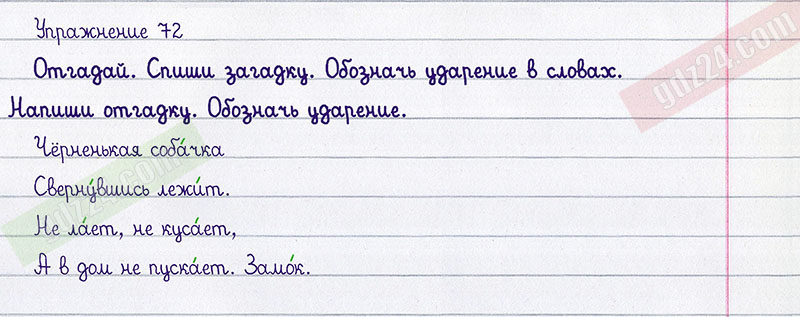 Упражнение 72
Отгадай. Спиши загадку. Обозначь ударение в словах.
Напиши отгадку. Обозначь ударение.
Чёрненькая соба́чка
Сверну́вшись лежи́т.
Не ла́ет, не куса́ет,
А в дом не пуска́ет. Замо́к.
gdz24.com
gdz24.com